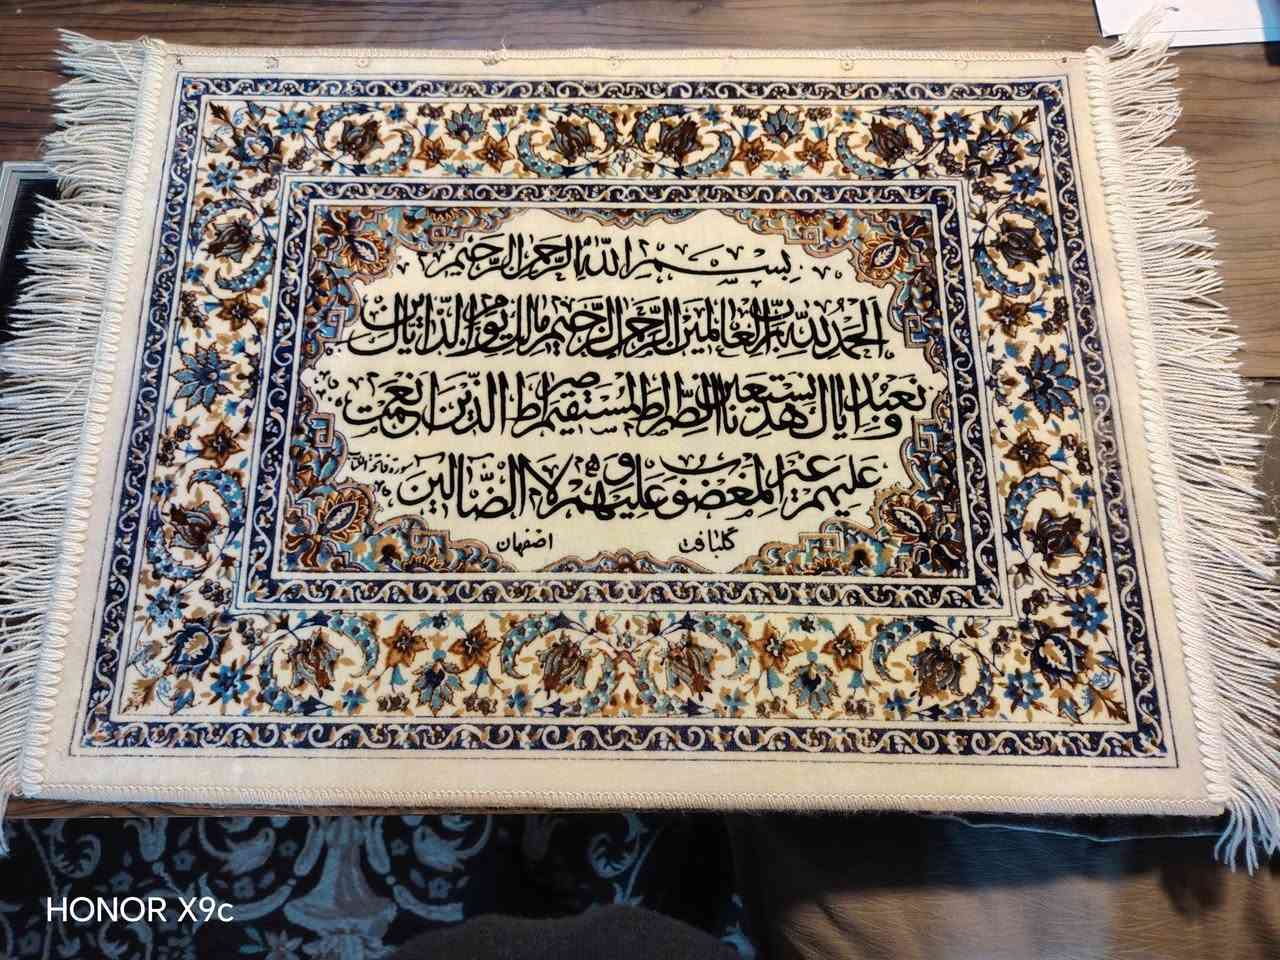 بسم الله الرحمن الرحيم
الحمد لله رب العالمين الرحمن الرحيم مالك يوم الدين اياك
نعبد و اياك نستعين اهدنا الصراط المستقيم صراط الذين انعمت
عليهم غير المغضوب عليهم و لا الضالين
سورة فاتحة الكتاب
گلبافت اصفهان
HONOR X9c